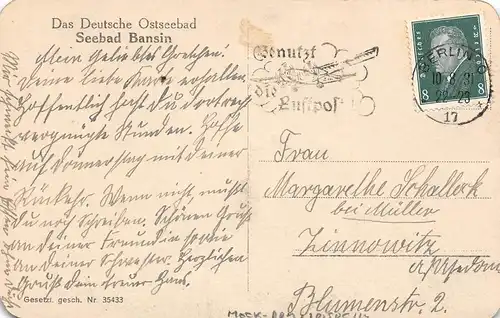 Das Deutsche Ostseebad
Seebad Bansin
Mein Geliebtes Gretchen!
Deine liebe Karte erhalten.
Hoffentlich hast Du dort recht
vergnügte Stunden. Hoffe
auf Donnerstag mit Deiner
Rückkehr. Wenn nicht, mußt
Du noch schreiben. Schönen Gruß
an Deiner Freundin sowie
an Deiner Schwester. Herzlichen
Gruß Dein treuer Hans.
Gesetzl. gesch. Nr. 35433
Benutzt
die
Luftpost
BERLIN
10.8.31
22-23
17
DEUTSCHES REICH
8 8
Frau
Margarethe Schallock
bei Müller
Zinnowitz
a/Usedom
Blumenstr. 2.